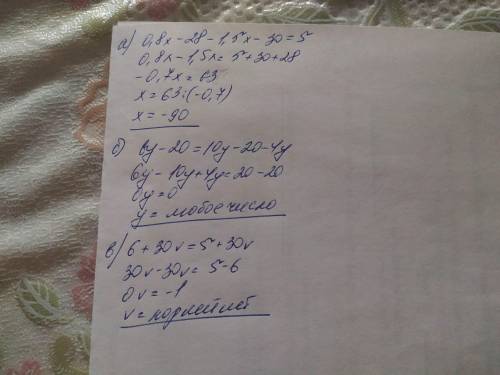 а) 0,8x-28-1,5x-30=5
0,8x-1,5x=5+30+28
-0,7x=63
x=63:(-0,7)
x=-90
б) 6y-20=10y-20-4y
6y-10y+4y=20-20
0y=0
y=любое число
в) 6+30v=5+30v
30v-30v=5-6
0v=-1
v=корней нет